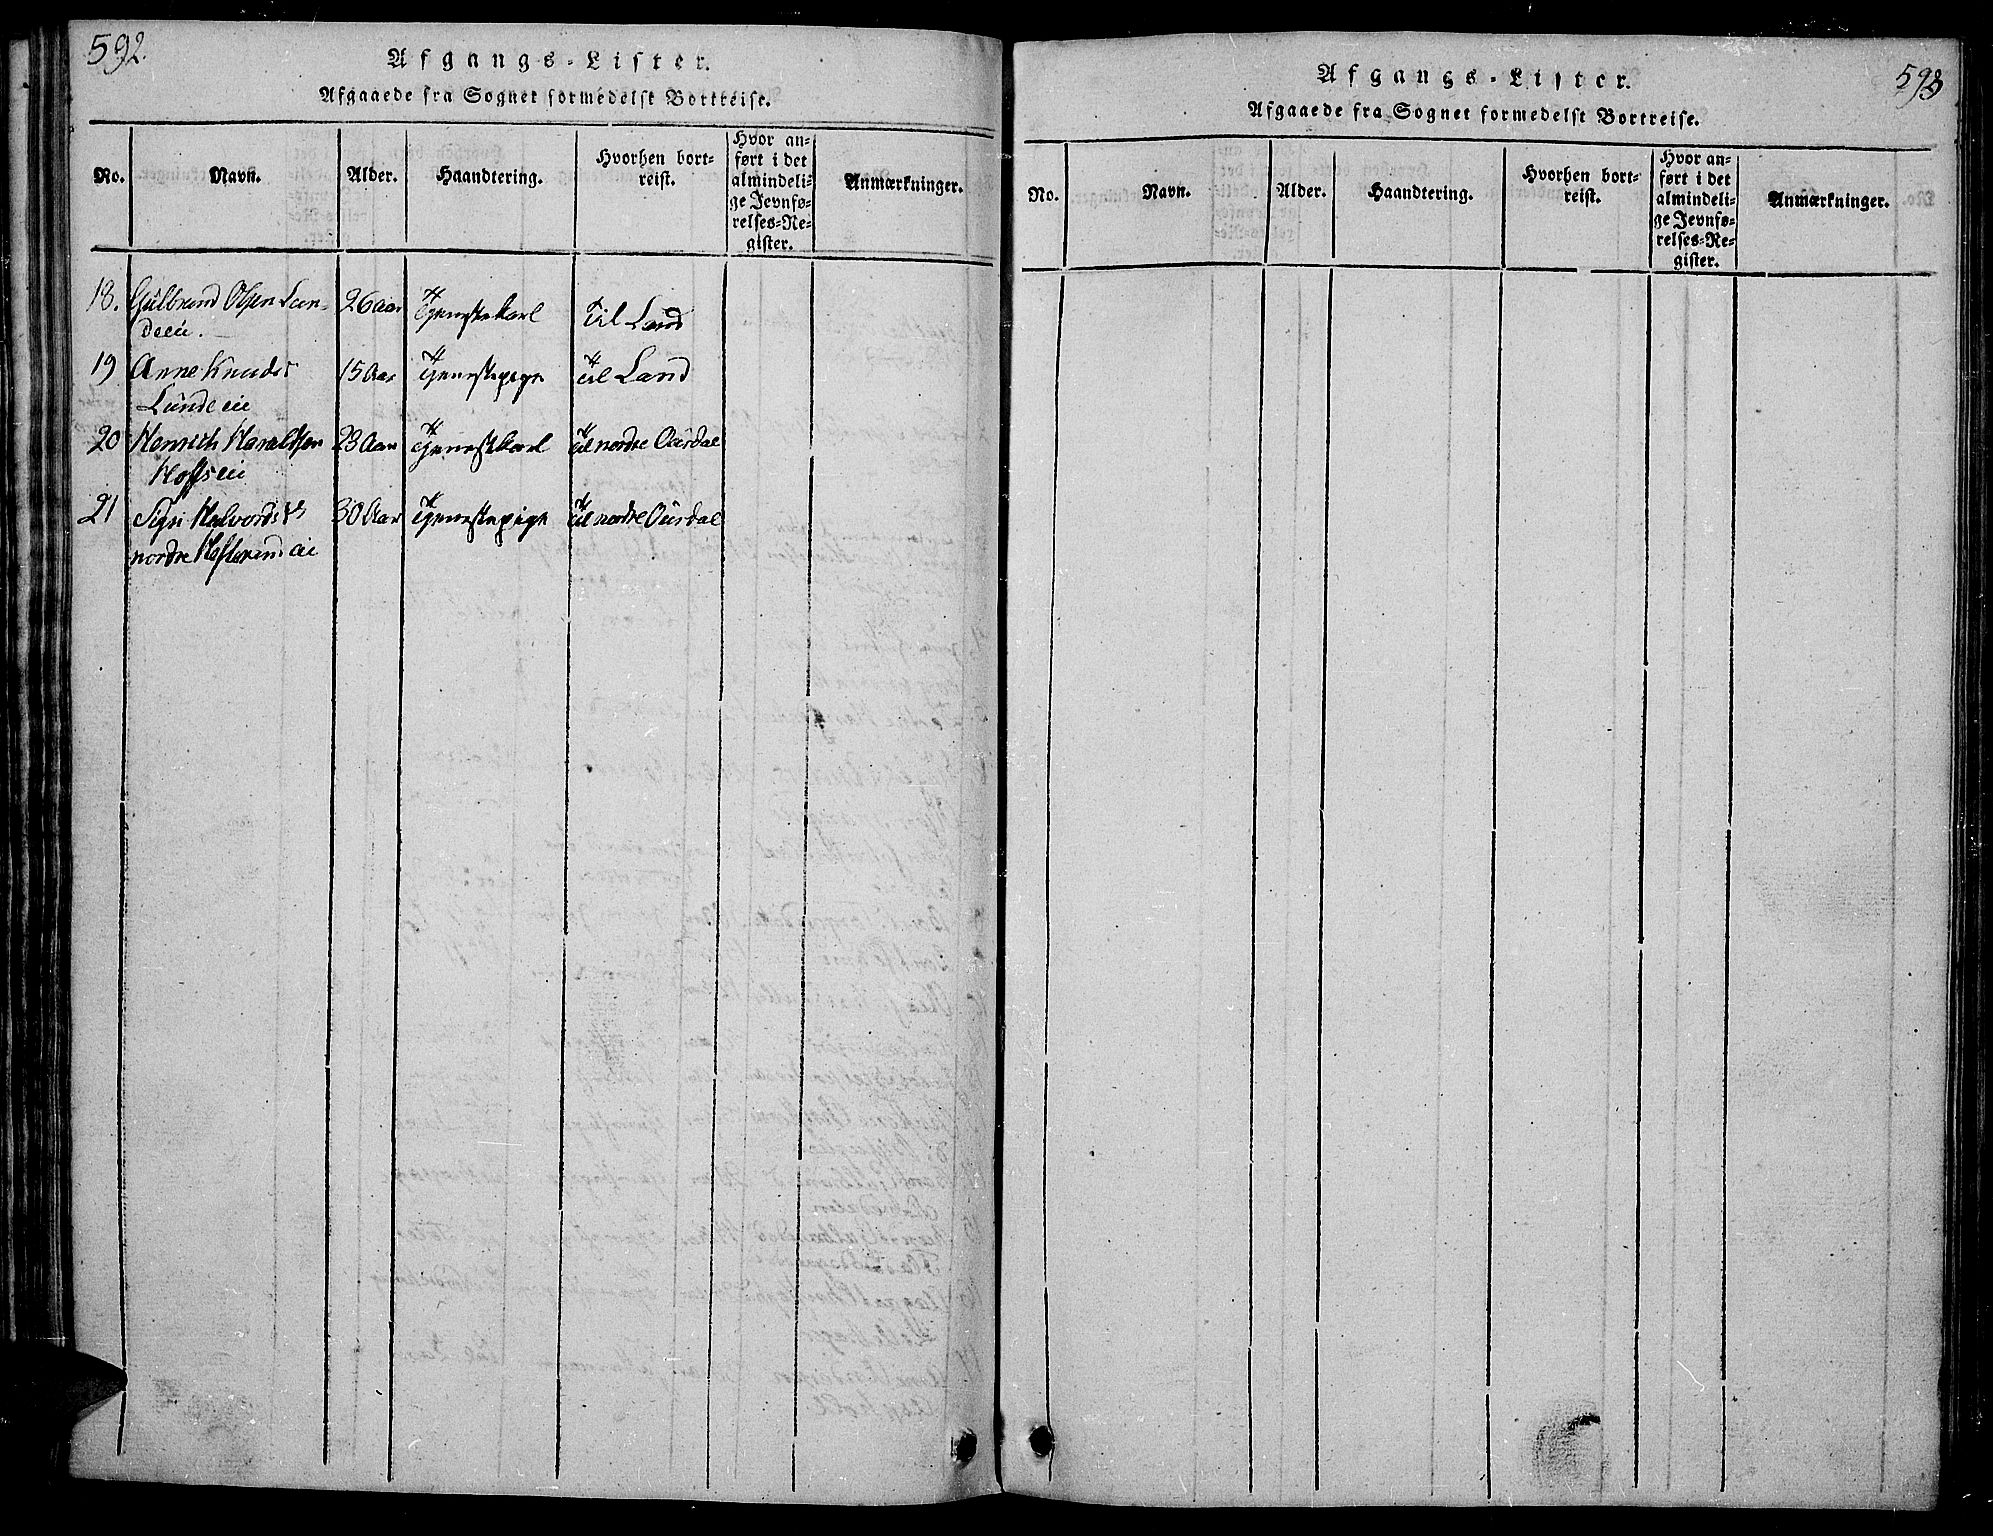 592.
Afgangs-Lister.
Afgaaede fra Sognet formedelst Bortreise.
No. Navn. Alder. Haandtering. Hvorhen bort-
reist. Hvor an-
ført i det
almindeli-
ge Jevnfø-
relses-Re-
gister. Anmærkninger.
18. Gulbrand Olsen Lun- 26 aar Tjenestekarl Til Land
deeie.
19 Anne Knuds 15 Aar Tjenestepige til Land
Lundeeie
20 Haraldsen 23 Aar Tjenestekarl til nordre Ourdal
Hoffseie
21 Sigri Halvordsd 30 Aar Tjenestepige til nordre Ourdal
nordre eie
593
Afgangs-Lister.
Afgaaede fra Sognet formedelst Bortreise.
No. Navn. Alder. Haandtering. Hvorhen bort-
reist. Hvor an-
ført i det
almindeli-
ge Jevnfø-
relses-Re-
gister. Anmærkninger.